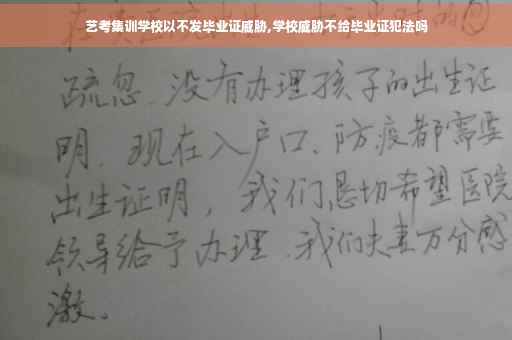 艺考集训学校以不发毕业证威胁,学校威胁不给毕业证犯法吗
疏忽.没有办理孩子的出生证
明.现在入户口、防疫都需要
出生证明，我们恳切希望医院
领导给予办理.我们夫妻万分感
激。